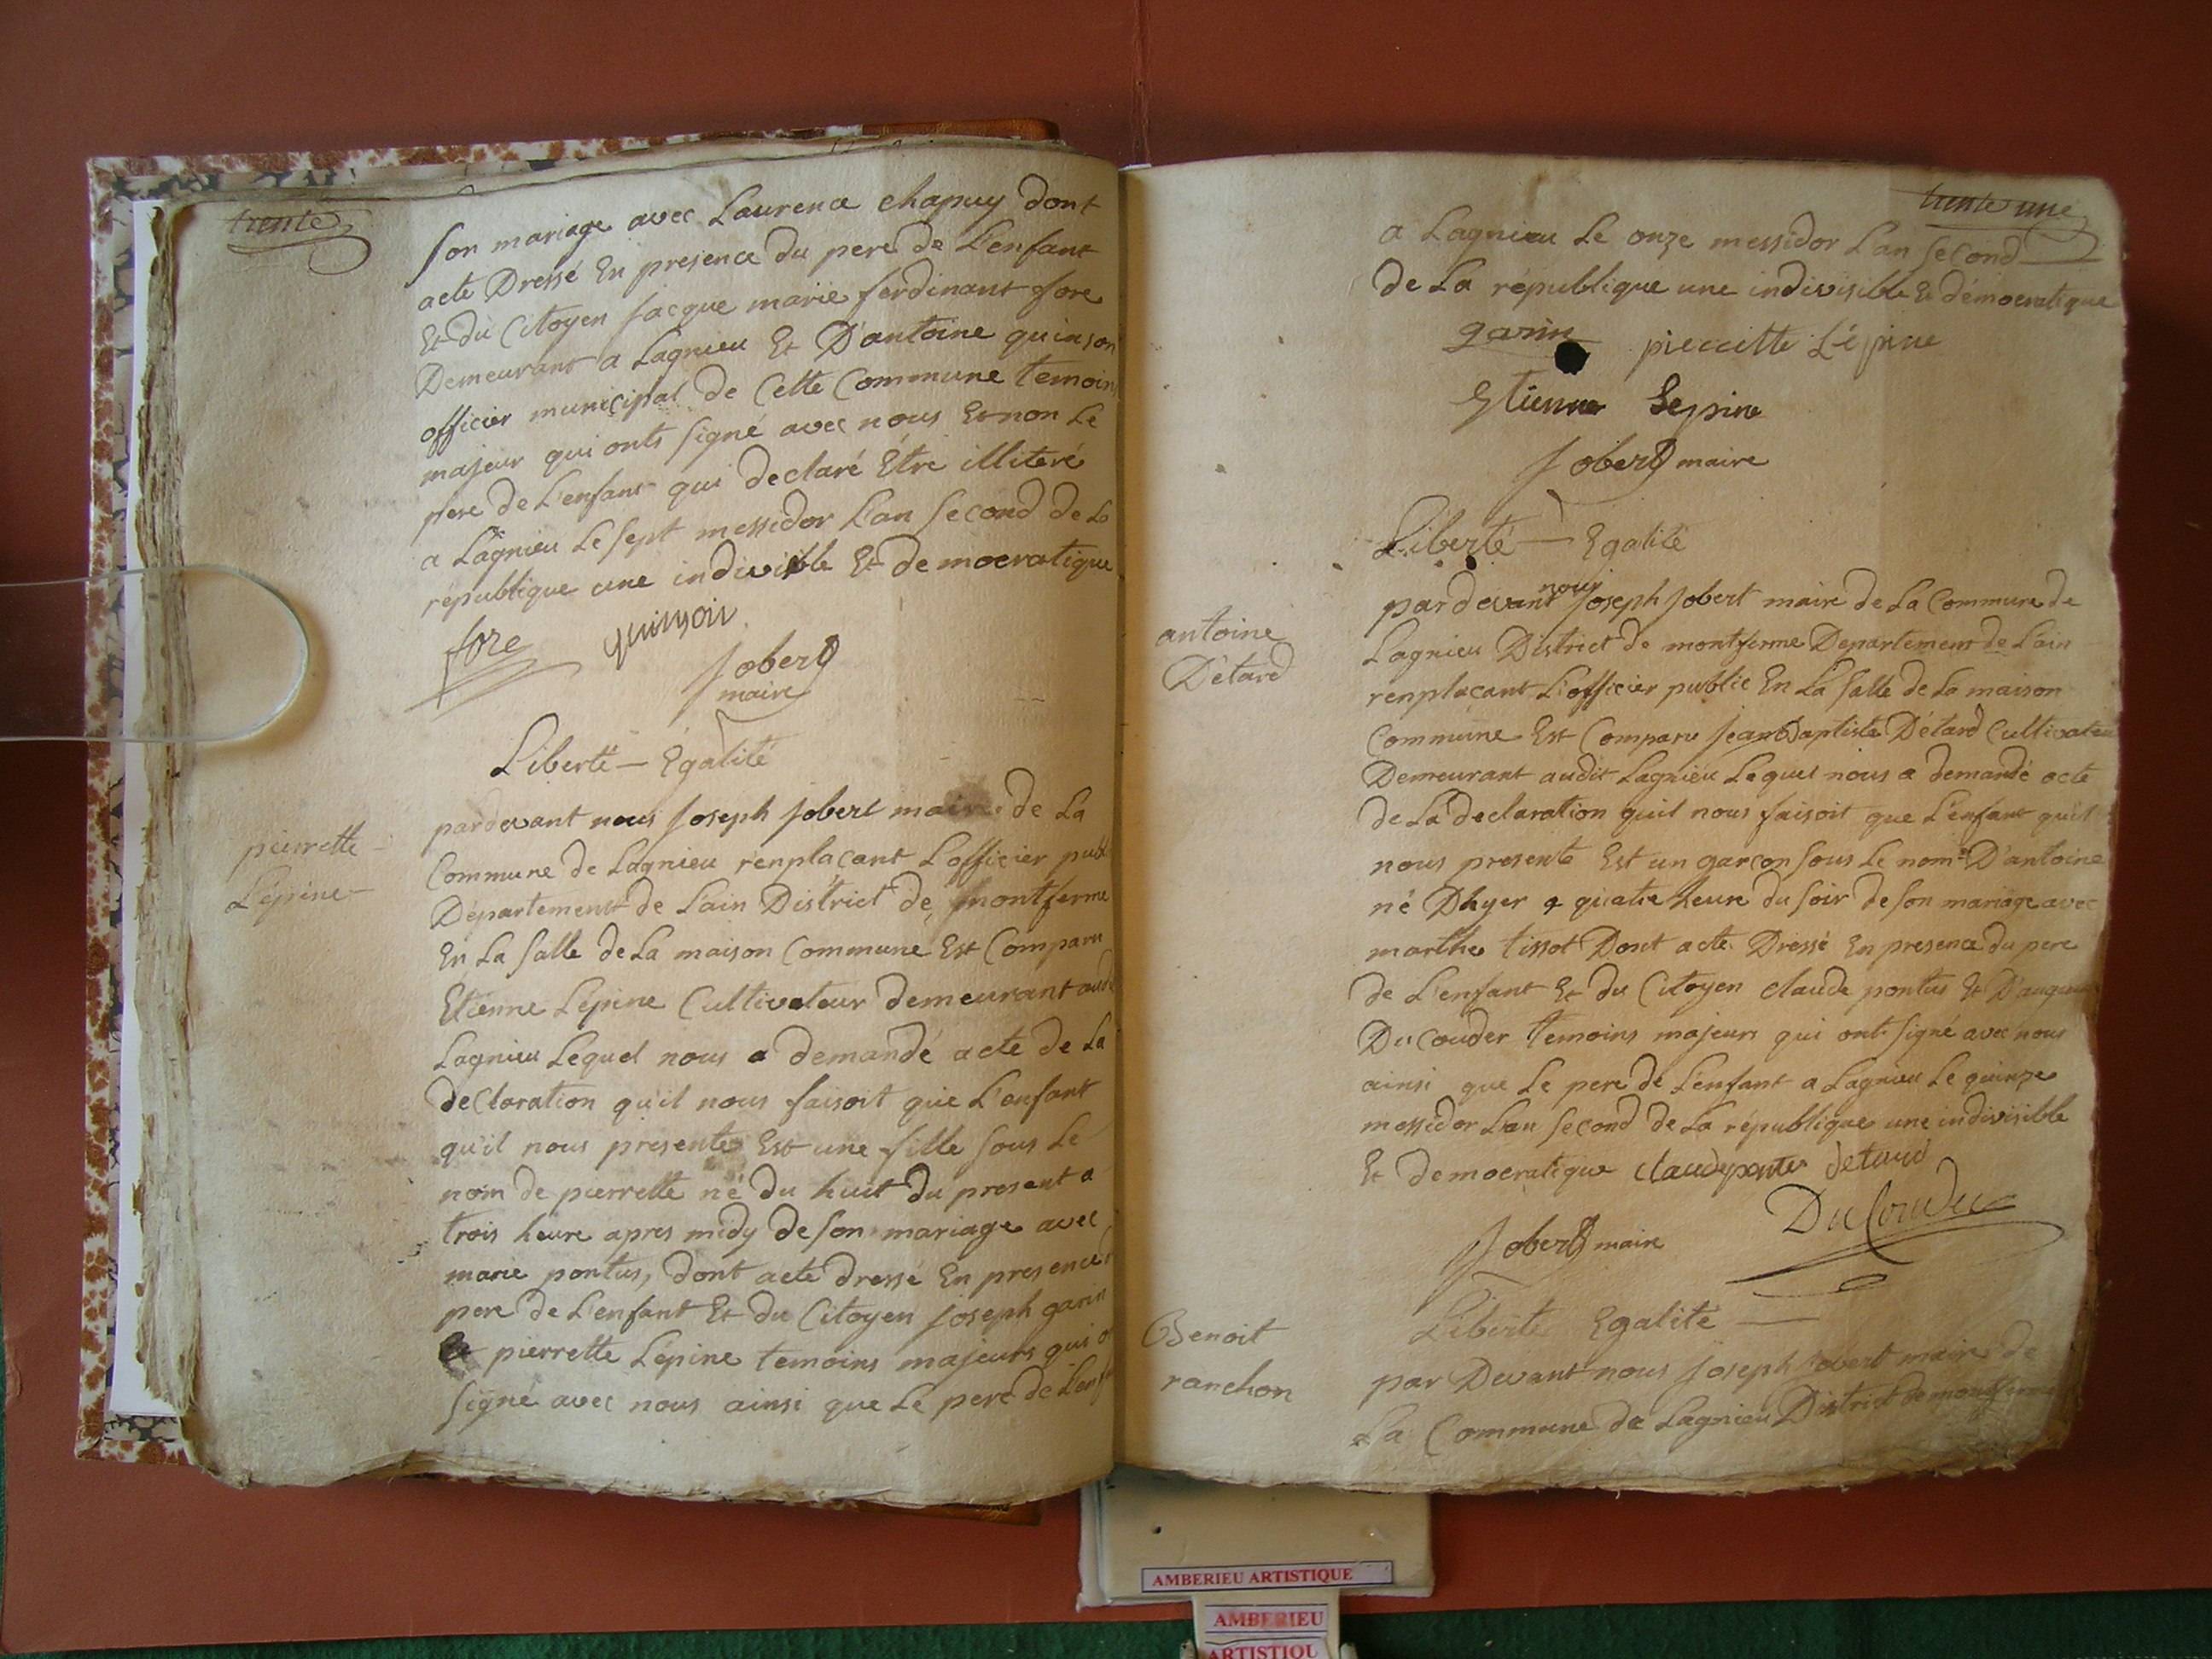 trente
son mariage avec Laurence chapuy Dont
acte Dressé En presence du pere de L'enfant
Et du Citoyen jacque marie ferdinant fore
Demeurant a Lagnieu Et D'antoine quinson
officier municipal de Cette Commune temoin
majeur qui onts signé avec nous Et non Le
pere de L'enfant qui declaré Être illiteré
a Lagnieu Le sept messidor L'an second de La
république une indivisible Et democratique
fore quinson
jobert
maire
Liberté — Egalité
pierrette
Lépine
pardevant nous joseph jobert maire de La
Commune de Lagnieu renplaçant Lofficier publi
Département de L'ain District de montferme
En La salle de La maison Commune Est Comparu
Etienne Lépine Cultivateur demeurant aud
Lagnieu Lequel nous a demandé acte de La
declaration qu'il nous faisoit que L'enfant
qu'il nous presente Est une fille sous Le
nom de pierrette né du huit du present a
trois heure apres midy de son mariage avec
marie pontus, dont acte dressé En presence
pere de L'enfant Et du Citoyen joseph garin
Et pierrette Lépine temoins majeurs qui o
signé avec nous ainsi que Le pere de L'enf
trente une
a Lagnieu Le onze messidor L'an second
de La république une indivisible Et démocratique
garin pieccette L'épine
Etienne Lepine
jobert maire
Liberté — Egalité
antoine
Détard
nous
pardevant joseph jobert maire de La Commune de
Lagnieu District de montferme Departement de L'ain
renplaçant L'officier public En La salle de La maison
Commune Est Comparu jean Baptiste Détard Cultivateu
Demeurant audit Lagnieu Lequel nous a demandé acte
de La declaration quil nous faisoit que L'enfant qu'il
nous presente Est un garcon sous Le nom D'antoine
né Dhyer a quatre heure du soir de son mariage avec
marthe tissot Dont acte Dressé En presence du pere
de L'enfant Et du Citoyen claude pontus Et
Du couder temoins majeurs qui ont signé avec nous
ainsi que Le pere de L'enfant a Lagnieu Le quinze
messidor L'an second de La république une indivisible
Et democratique claude pontus detard
DuCouder
jobert maire
Liberté Egalité —
Benoit
ranchon
par Devant nous joseph jobert maire de
La Commune de Lagnieu District de montferme
AMBERIEU ARTISTIQUE
AMBERIEU
ARTISTIQU